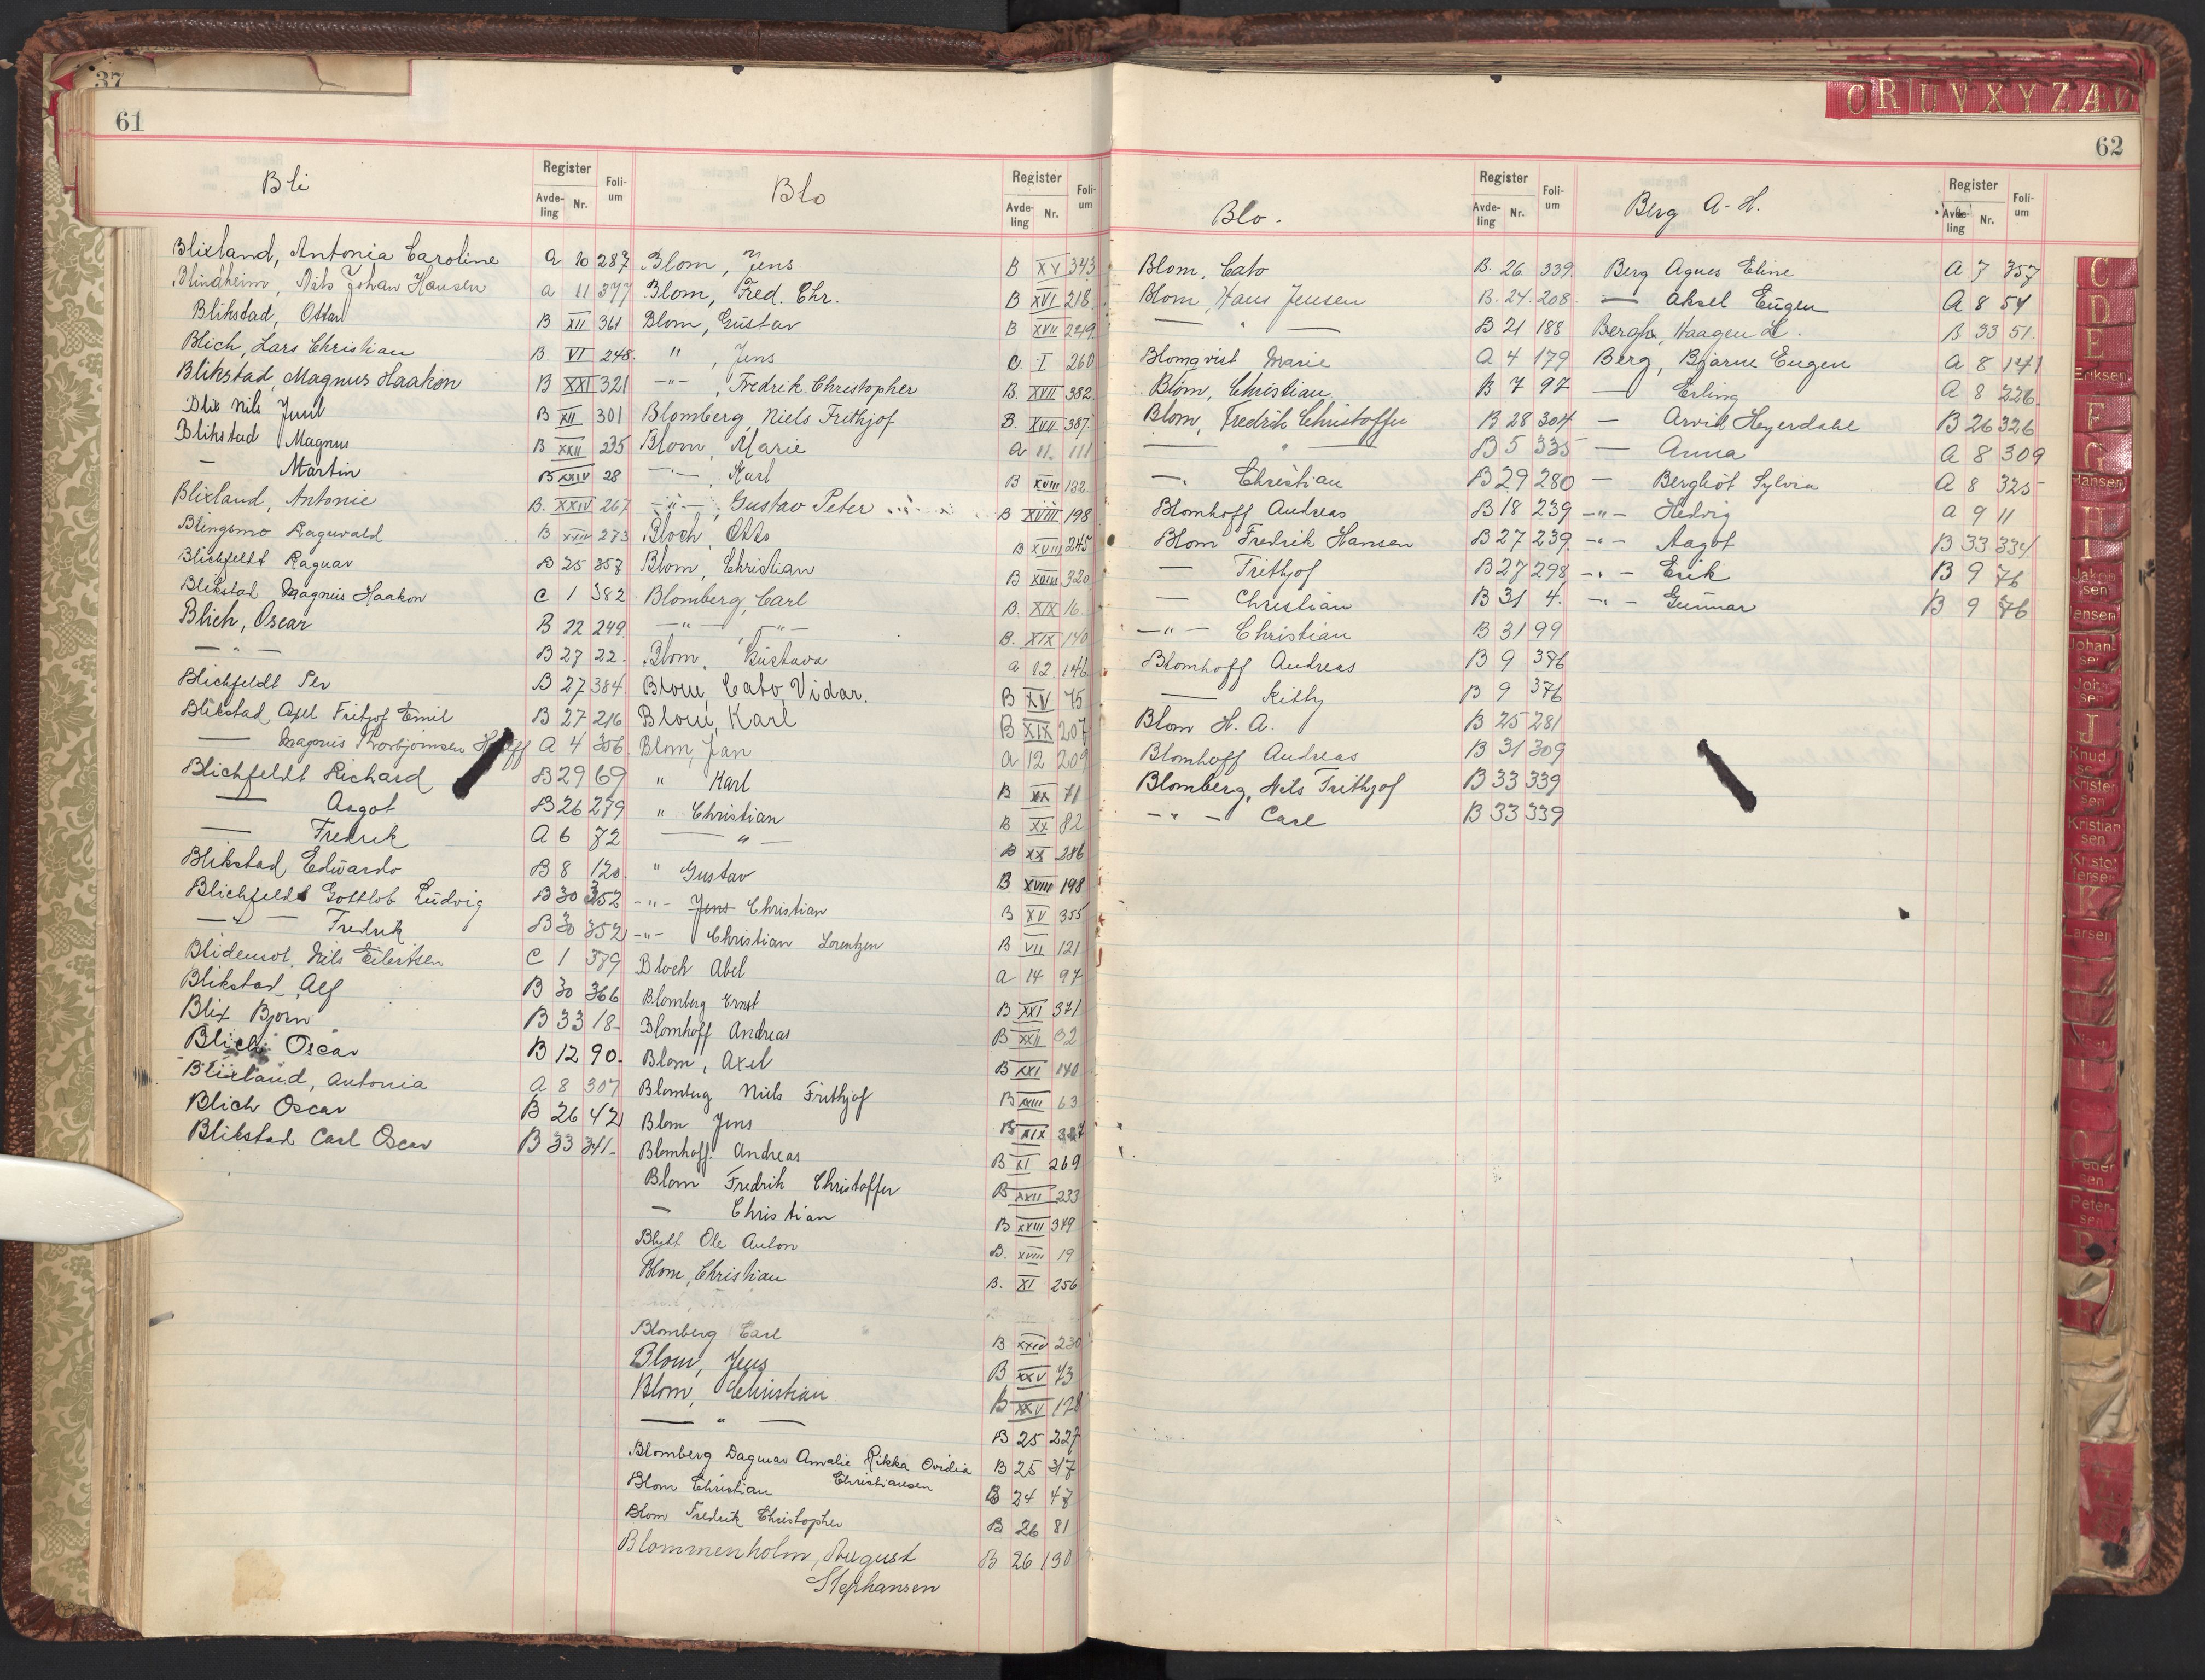 37
61
Bli
Register
Avde-
ling
Nr.
Foli-
um
Blixland, Antonia Caroline A 10 287
Blindheim, Nils Johan Hansen a 11 377
Blikstad, Ottar B XII 361
Blich, Lars Christian B. VI 248.
Blikstad, Magnus Haakon B XXI 321
Blix Nils Juul B XII 301
Blikstad Magnus B XXII 235
— Martin B XXIV 28
Blixland, Antonie B. XXIV 267
Blingsmo Ragnvald B XXIV 273
Blichfeldt Ragnar B 25 357
Blikstad Magnus Haakon C 1 382
Blich, Oscar B 22 249.
— " — B 27 22.
Blichfeldt Per B 27 384
Blikstad Axel Fritjof Emil B 27 216
— Magnus Thorbjørnsen A 4 356
Blichfeldt Richard B 29 69
— Aagot B 26 279
— Fredrik A 6 72
Blikstad Edwardo B 8 120
Blichfeldt Gottlob Ludvig B 30 352
— " — Fredrik B 30 352
Nils Eilertsen C 1 379
Blikstad Alf B 30 366
Blix Bjørn B 33 18-
Blich Oscar B 12 90.
Blixland, Antonia A 8 307
Blich Oscar B 26 42
Blikstad Carl Oscar B 33 341-
Blo
Register
Avde-
ling
Nr.
Foli-
um
Blom, Jens B XV 343
Blom, Fred. Chr. B XVI 218
Blom, Gustav B XVII 249
" , Jens C. I 260
—"— , Fredrik Christopher B. XVII 382
Blomberg, Niels Frithjof B. XVII 387.
Blom, Marie a 11. 111
—"— , Karl B XVIII 132
—"— , Gustav Peter B XVIII 198
Bloch, Otto B XVIII 245
Blom, Christian B XVIII 320
Blomberg, Carl B. XIX 16
—"— , —"— B. XIX 140
Blom, Gustava a 12 146
Blom, Cato, Vidar. B XV 75
Blom, Karl B XIX 207
Blom, Jan a 12 209
" Karl B XX 71
" Christian B XX 82
— " — B XX 286
" Gustav B XVIII 198
—"— Jens Christian B XV 355
—"— Christian Lorentzen B VII 121
Bloch Abel a 14 97
Blomberg Ernst B XXI 371
Blomhoff Andreas B XXII 02
Blom, Axel B XXI 140
Blomberg Niels Frithjof B XXIII 63
Blom Jens B XIX
Blomhoff Andreas B XI 269
Blom Fredrik Christoffer B XXII 233
— Christian B XXIII 349
Blytt Ole Anton B. XVIII 19
Blom, Christian B. XI 256
Blomberg Carl B XXIV 230
Blom, Jens B XXV 73
Blom, Christian B XXV 128
— " — B 25 227
Blomberg Dagmar Amalie Rikka Ovidia B 25 317
Christiansen
Blom Christian B 24 47
Blom Fredrik Christopher B 26 81
Blommenholm, August B 26 130
Stephansen
62
Blo.
Register
Avde-
ling
Nr.
Foli-
um
Blom, Cato B. 26 339
Blom, Hans Jensen B. 24. 208.
— " — B 21 188
Blomqvist Marie A 4 179
Blom, Christian B 7 97
Blom, Fredrik Christoffer B 28 304
— " — B 5 335
—. Christian B 29 280
Blomhoff Andreas B 18 239
Blom Fredrik Hansen B 27 239
— Frithjof B 27 298
— Christian B 31 4.
—"— Christian B 31 99
Blomhoff Andreas B 9 376
— Kitty B 9 376
Blom H. A. B 25 281
Blomhoff Andreas B 31 309
Blomberg, Nils Frithjof B 33 339
—"— Carl B 33 339
Berg A-H.
Register
Avde-
ling
Nr.
Foli-
um
Berg Agnes Eline A 7 357
— Aksel Eugen A 8 54
Bergh, Haagen L. B 33 51.
Berg, Bjarne Eugen A 8 141
— Erling A 8 226.
— Arvid Heyerdahl B 26 326
— Anna A 8 309
— Bergliot Sylvia A 8 325
—"— Hedvig a 9 11
—"— Aagot B 33 334
—"— Erik B 9 76
—"— Gunnar B 9 76
O R U V X Y Z Æ Ø
C
D
E
Eriksen
F
G
Hansen
H
I
Jakob-
sen
Jensen
Johan-
sen
John-
sen
J
Knud-
sen
Kristen-
sen
Kristian-
sen
Kristof-
fersen
K
Larsen
Peder-
sen
Peter-
sen
P